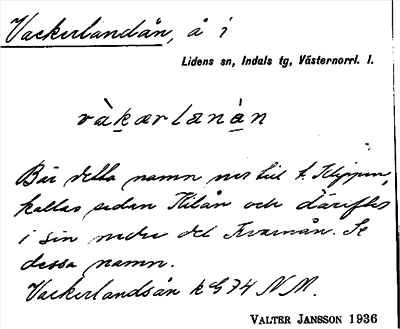 Vackerlandån, å i
Lidens sn, Indals tg, Västernorrl. l.
vàkarlanàn
Bär detta namn ner till t. Klippen,
kallas sedan Kilån och därefter
i sin nedre del Kvarnån. Se
dessa namn.
Vackerlandsån k G74 NM.
VALTER JANSSON 1936